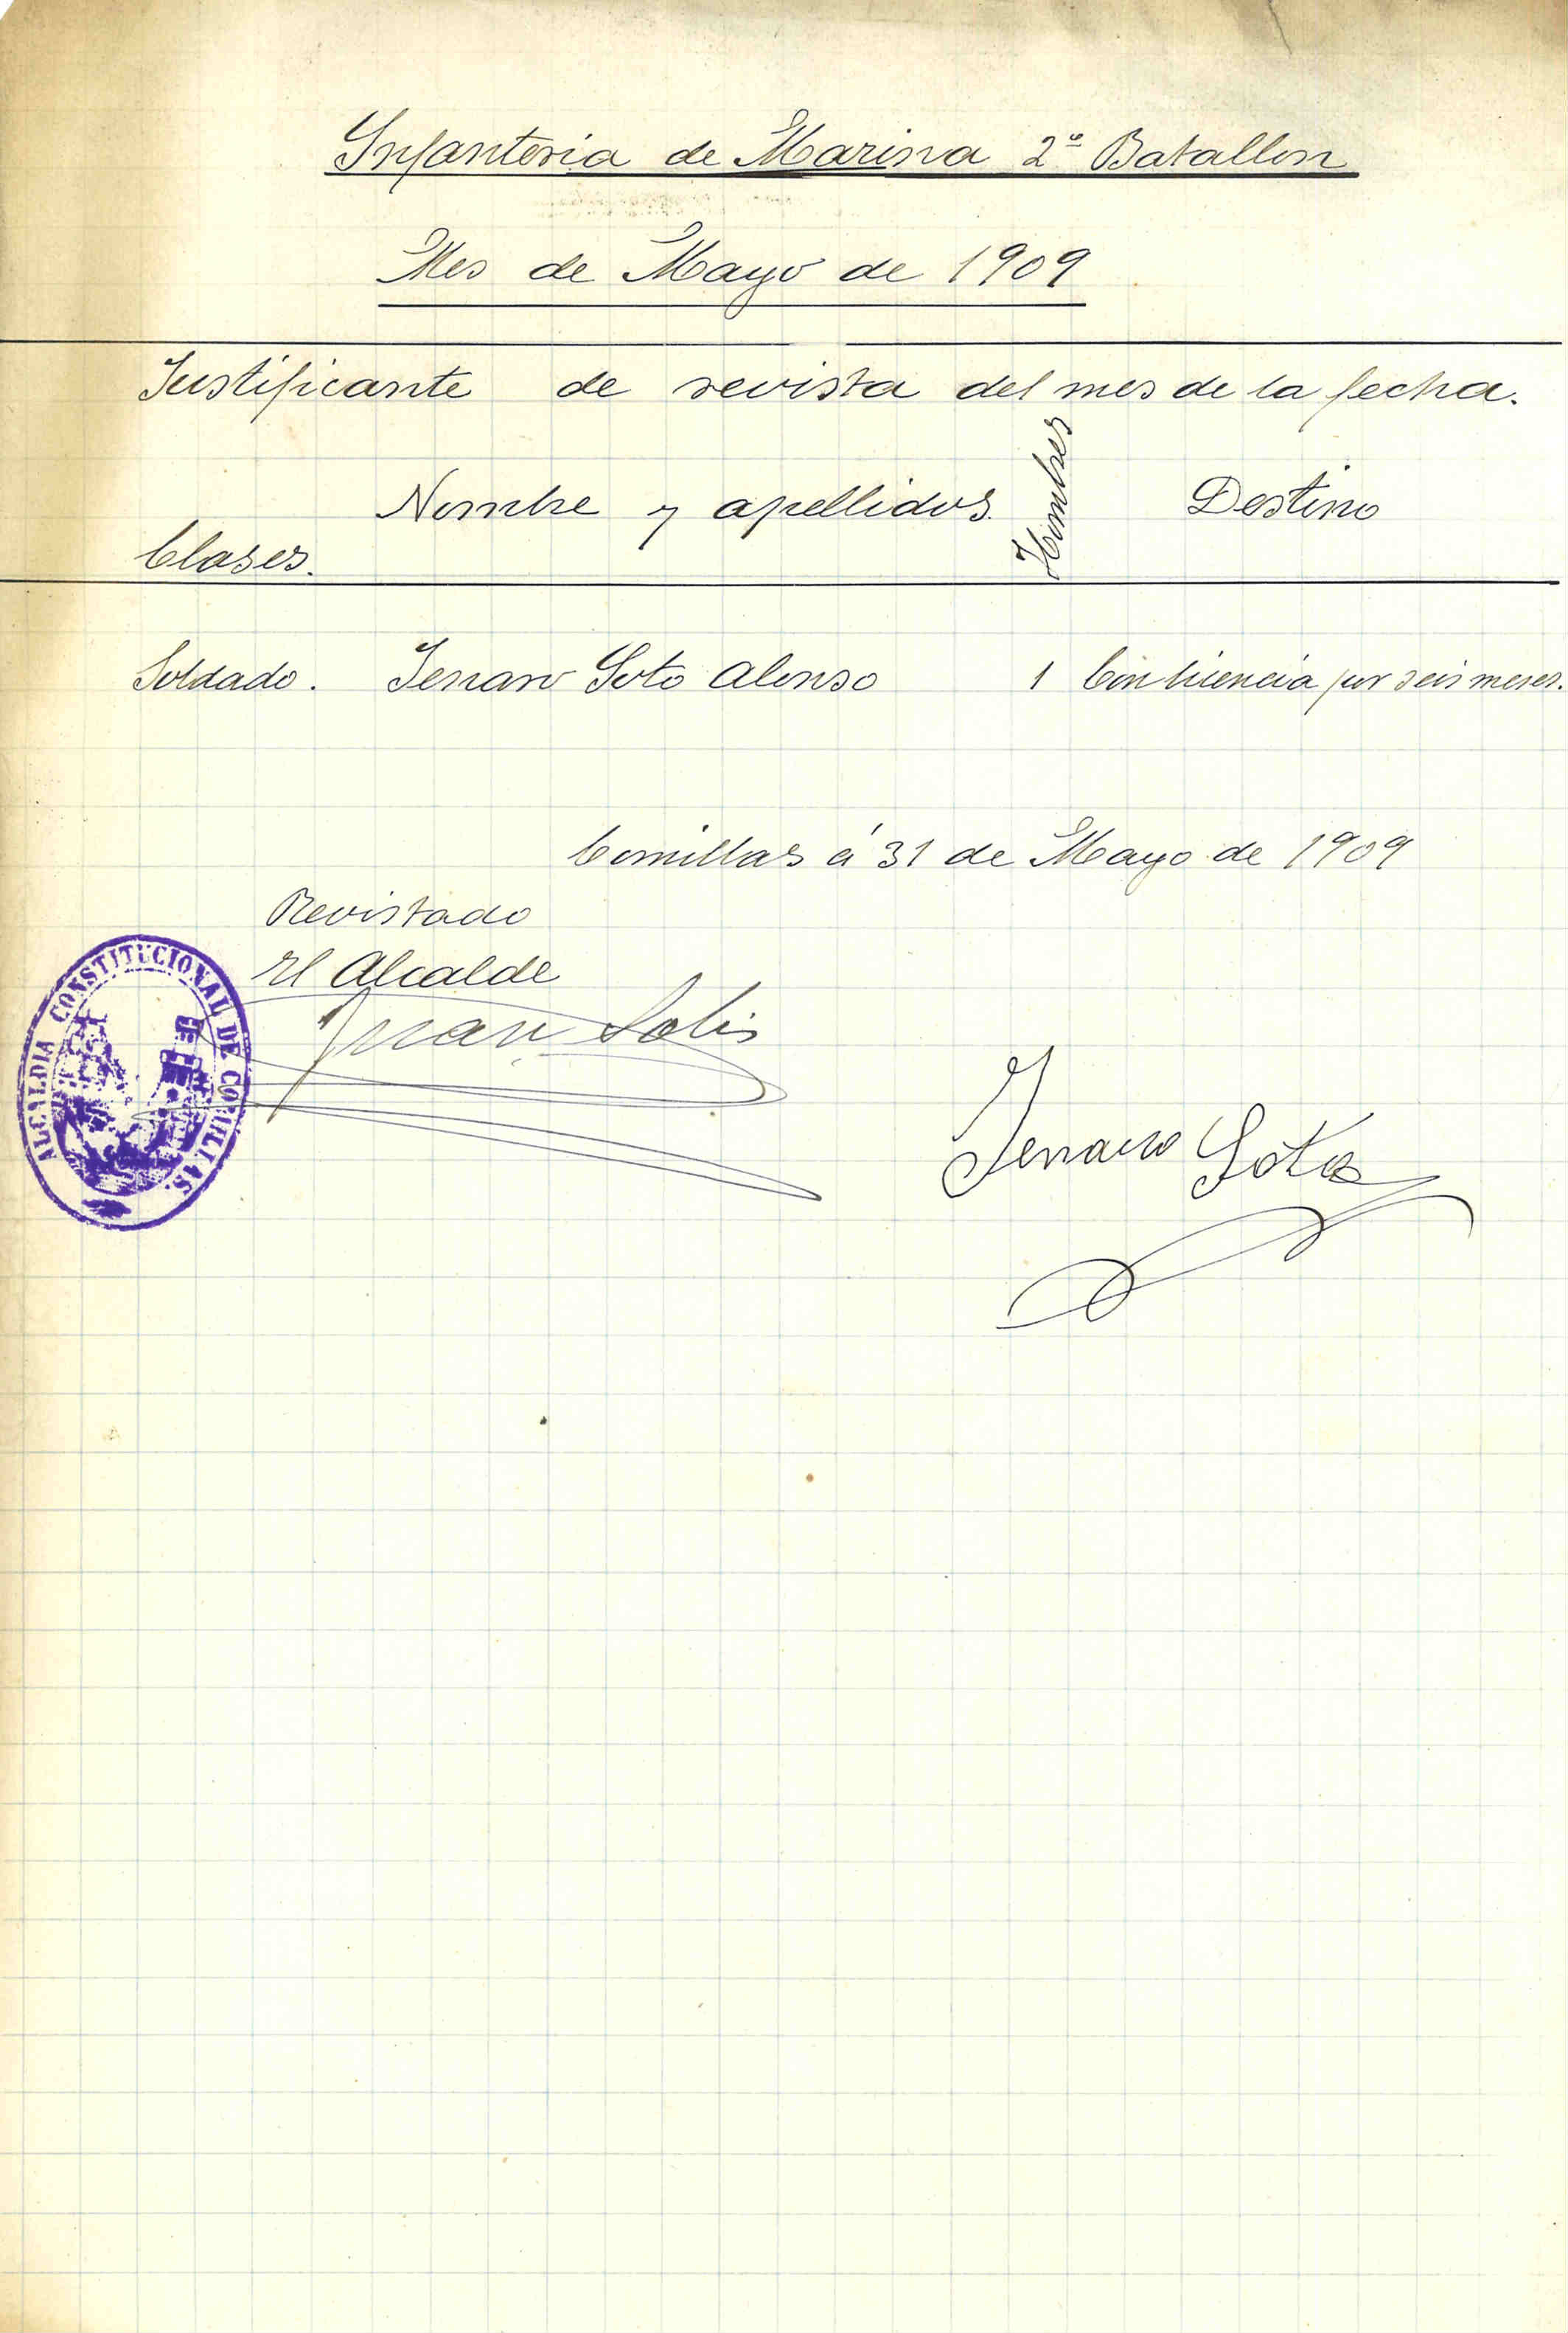 Infanteria de Marina 2º Batallon
Mes de Mayo de 1909
Justificante de revista del mes de la fecha.
Clases. Nombre y apellidos. Hombres Destino
Soldado. Jenaro Soto Alonso 1 Con licencia por seis meses.
Comillas á 31 de Mayo de 1909
Revistado
El Alcalde
Juan Solis
ALCALDIA CONSTITUCIONAL DE COMILLAS.
Jenaro Soto